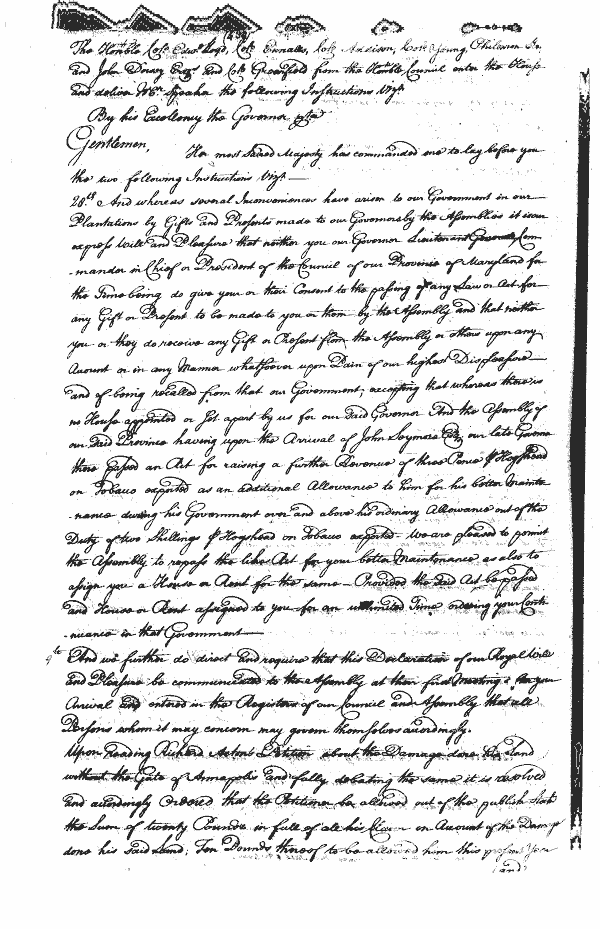 The Honble Colo Edwd Lloyd, Colo Ennalls, Colo Addison, Colo Young, Philemon
and John Dorsey Esqrs and Colo Greenfield from the Honble Council enter the House
and deliver Mr Speaker the following Instructions Vizt
By his Excellency the Governor
Gentlemen,
Her most Sacred Majesty has commanded me to lay before you
the two following Instructions Vizt
28th And whereas several Inconveniences have arisen to our Government in our
Plantations by Gifts and Presents made to our Governors by the Assemblies it is our
express Will and Pleasure that neither you our Governor Lieutenant Governor Com
-mander in Chief or President of the Council of our Province of Maryland for
the Time being do give your or their Consent to the passing of any Law or Act for
any Gift or Present to be made to you or them by the Assembly and that neither
you or they do receive any Gift or Present from the Assembly or others upon any
Account or in any Manner whatsoever upon Pain of our highest Displeasure
and of being recalled from that our Government; excepting that whereas there is
no House appointed or set apart by us for our said Governor And the Assembly of
our said Province having upon the Arrival of John Seymore Esq our late Governor
there passed an Act for raising a further Revenue of three Pence ⅌ Hogshead
on Tobacco exported as an additional Allowance to him for his better Mainte
-nance during his Government over and above his ordinary Allowance out of the
Duty of two Shillings ⅌ Hogshead on Tobacco exported We are pleased to permit
the Assembly to repass the like Act for your better Maintenance as also to
assign you a House or Rent for the same Provided the said Act be passed
and House or Rent assigned to you for an unlimited Time during your Conti
-nuance in that Government
9th And we further do direct and require that this Declaration of our Royal Will
and Pleasure be communicated to the Assembly at their first Meeting after your
Arrival and entered in the Registers of our Council and Assembly that all
Persons whom it may concern may govern themselves accordingly.
Upon Reading Richard Petition about the Damage done his Land
without the Gate of Annapolis and fully debating the same it is resolved
and accordingly Ordered that the Petitioner be allowed out of the publick Stock
the Sum of twenty Pounds in full of all his Claim on Account of the Damage
done his said Land; Ten Pounds thereof to be allowed him this present Year
(and